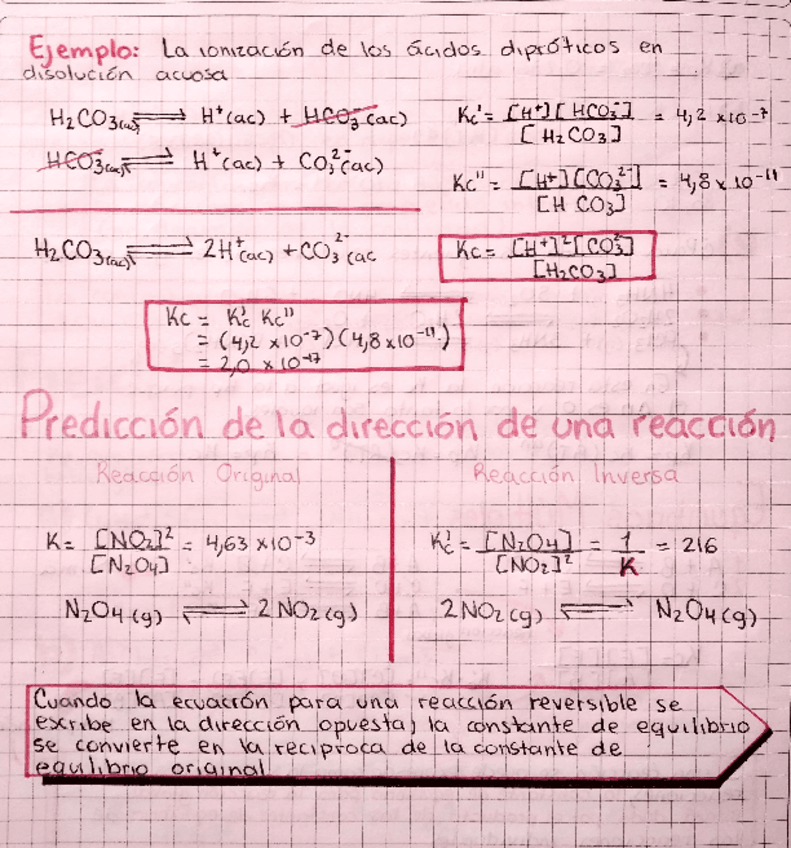 Ejemplo: La ionización de los ácidos dipróticos en
disolución acuosa
H₂CO₃(ac) ⇌ H⁺(ac) + HCO₃⁻(ac)
Kc' = [H⁺][HCO₃⁻] / [H₂CO₃] = 4,2 x10⁻⁷
HCO₃⁻(ac) ⇌ H⁺(ac) + CO₃²⁻(ac)
Kc'' = [H⁺][CO₃²⁻] / [HCO₃] = 4,8 x 10⁻¹¹
H₂CO₃(ac) ⇌ 2H⁺(ac) + CO₃²⁻(ac
Kc = [H⁺]²[CO₃²⁻] / [H₂CO₃]
Kc = Kc' Kc''
= (4,2 x10⁻⁷)(4,8 x10⁻¹¹)
= 2,0 x 10⁻¹⁷
Predicción de la dirección de una reacción
Reacción Original
K = [NO₂]² / [N₂O₄] = 4,63 x10⁻³
N₂O₄(g) ⇌ 2NO₂(g)
Reacción Inversa
Kc' = [N₂O₄] / [NO₂]² = 1 / K = 216
2NO₂(g) ⇌ N₂O₄(g)
Cuando la ecuación para una reacción reversible se
escribe en la dirección opuesta, la constante de equilibrio
se convierte en la reciproca de la constante de
equilibrio original